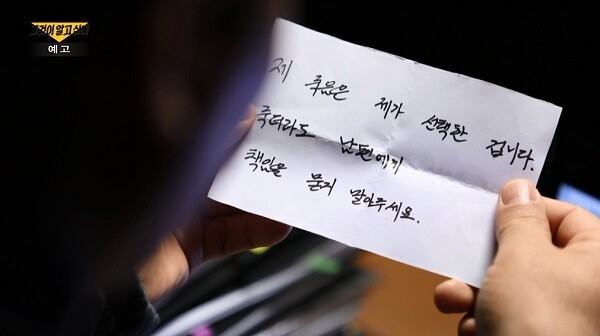 그것이 알고싶다
예고
제 죽음은 제가 선택한 겁니다.
죽더라도 남편에게
책임을 묻지 말아주세요.